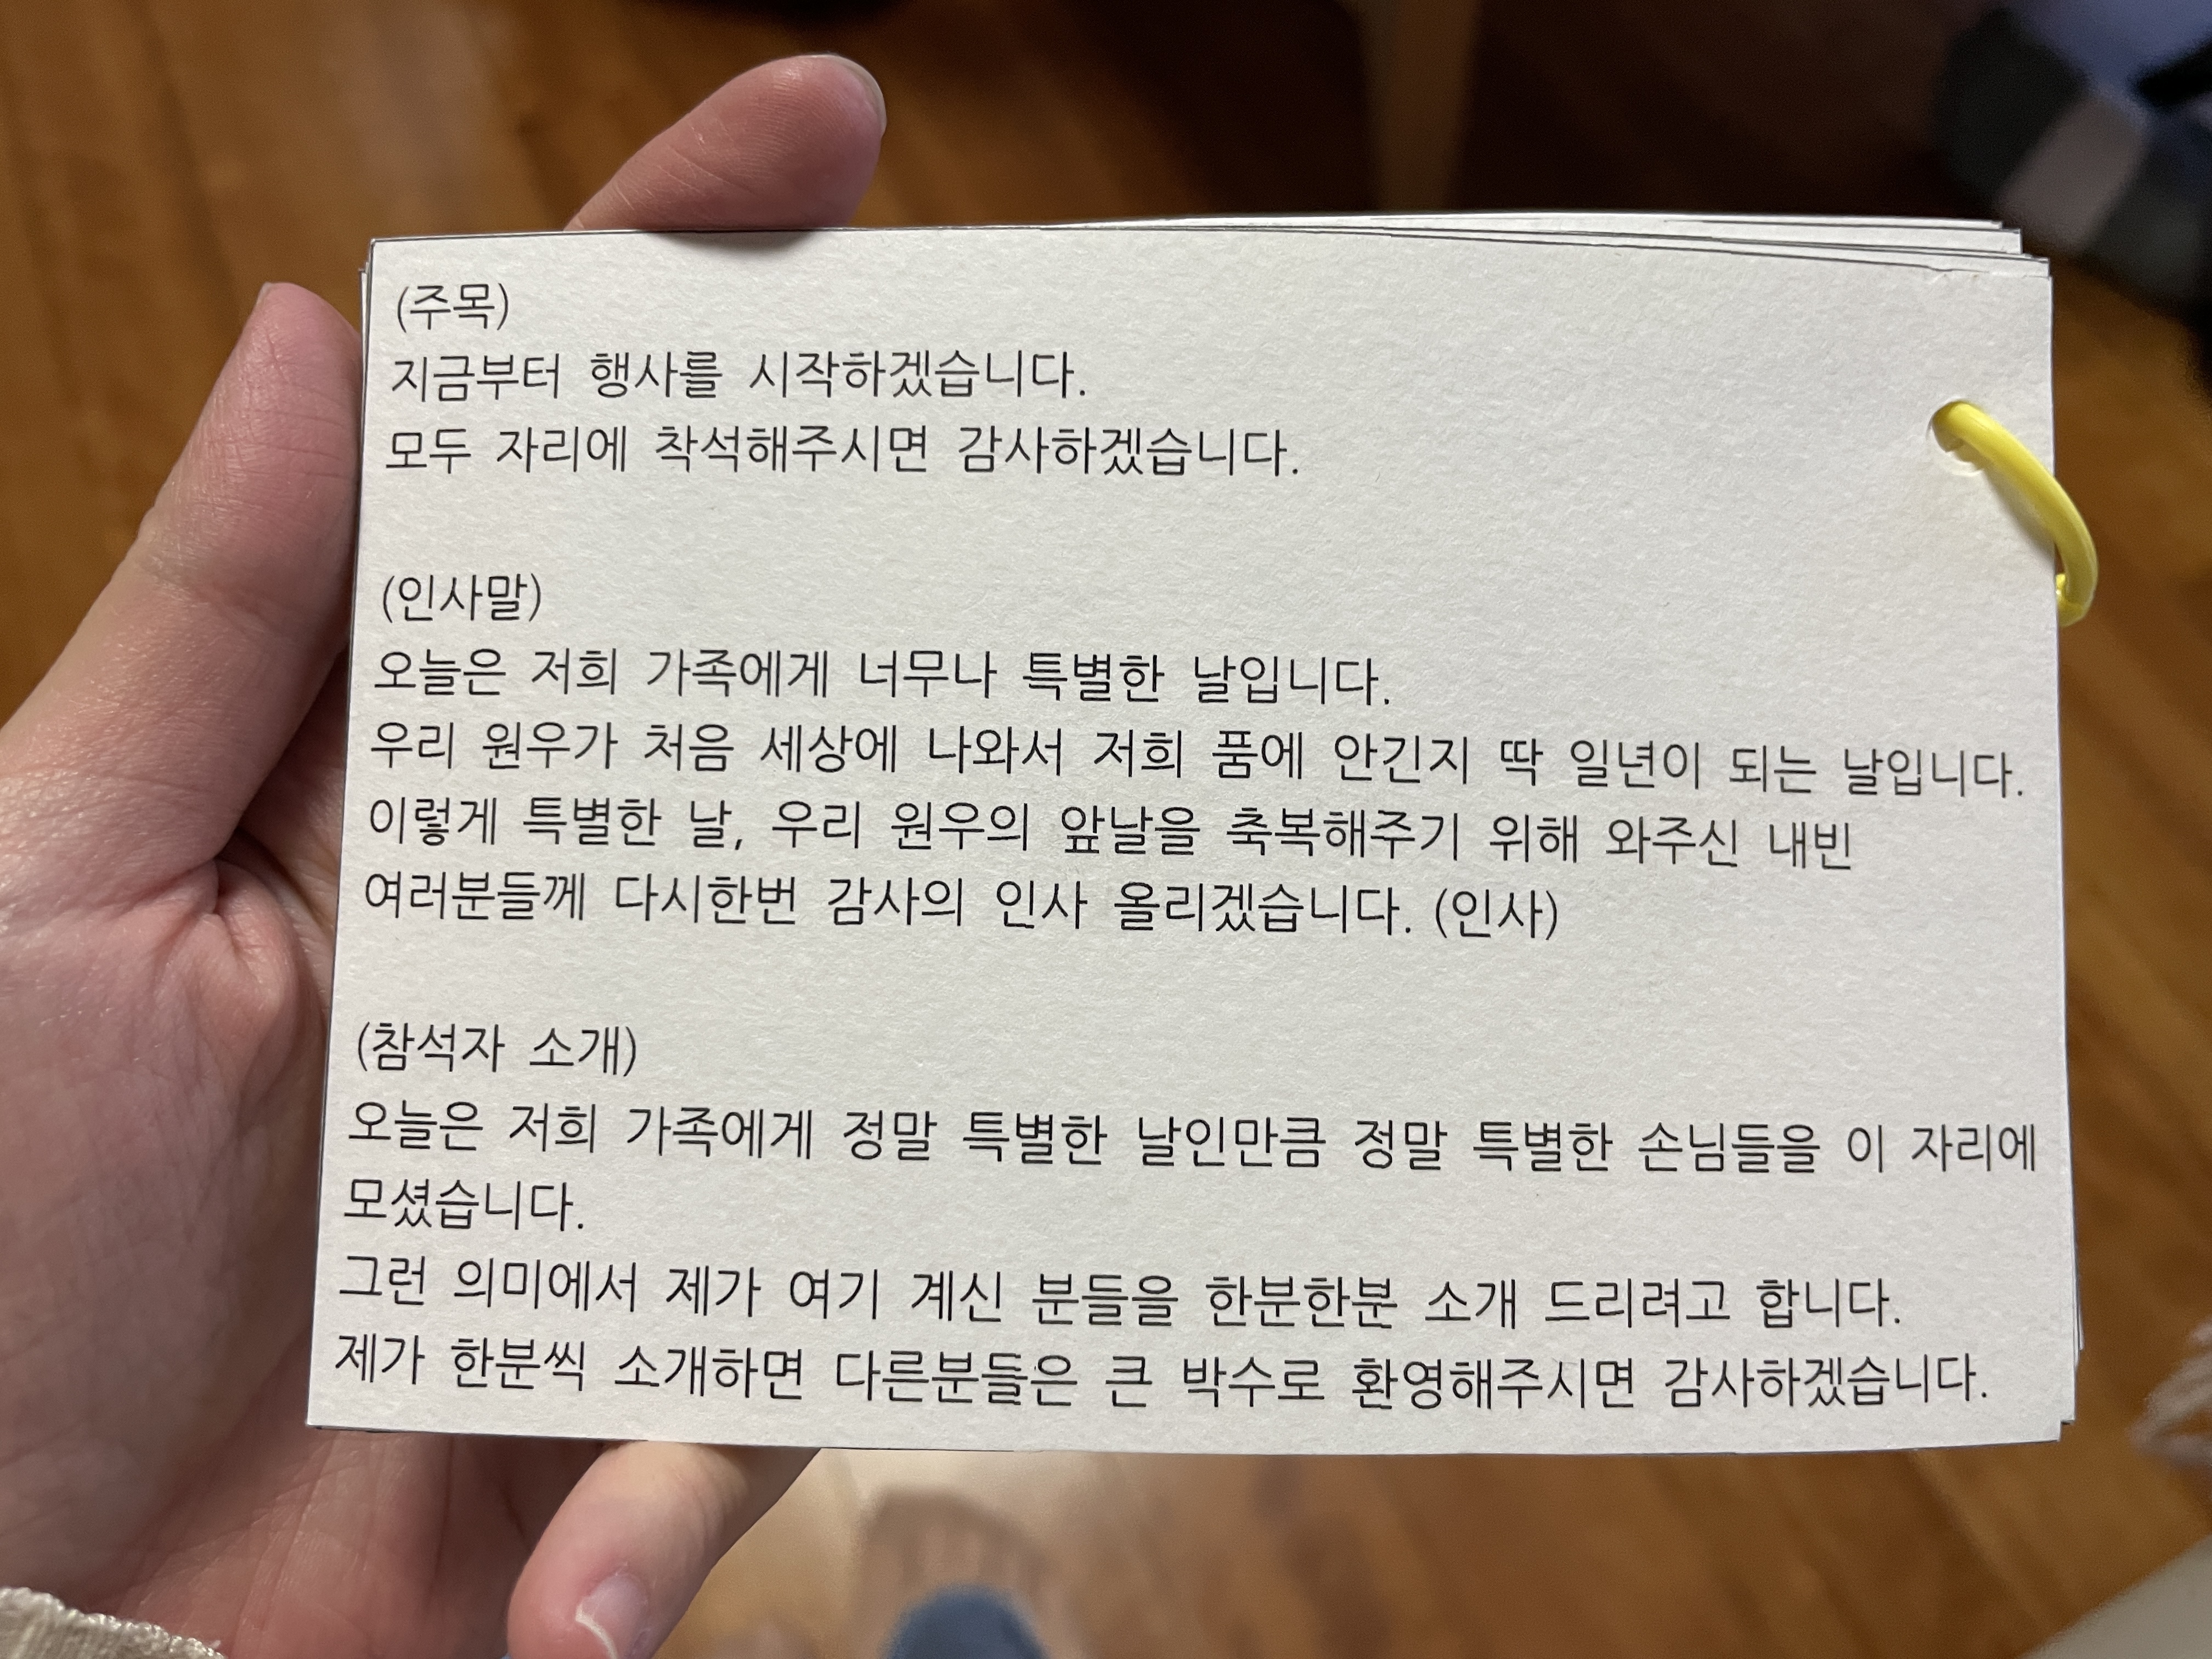 (주목)
지금부터 행사를 시작하겠습니다.
모두 자리에 착석해주시면 감사하겠습니다.
(인사말)
오늘은 저희 가족에게 너무나 특별한 날입니다.
우리 원우가 처음 세상에 나와서 저희 품에 안긴지 딱 일년이 되는 날입니다.
이렇게 특별한 날, 우리 원우의 앞날을 축복해주기 위해 와주신 내빈
여러분들께 다시한번 감사의 인사 올리겠습니다. (인사)
(참석자 소개)
오늘은 저희 가족에게 정말 특별한 날인만큼 정말 특별한 손님들을 이 자리에
모셨습니다.
그런 의미에서 제가 여기 계신 분들을 한분한분 소개 드리려고 합니다.
제가 한분씩 소개하면 다른분들은 큰 박수로 환영해주시면 감사하겠습니다.